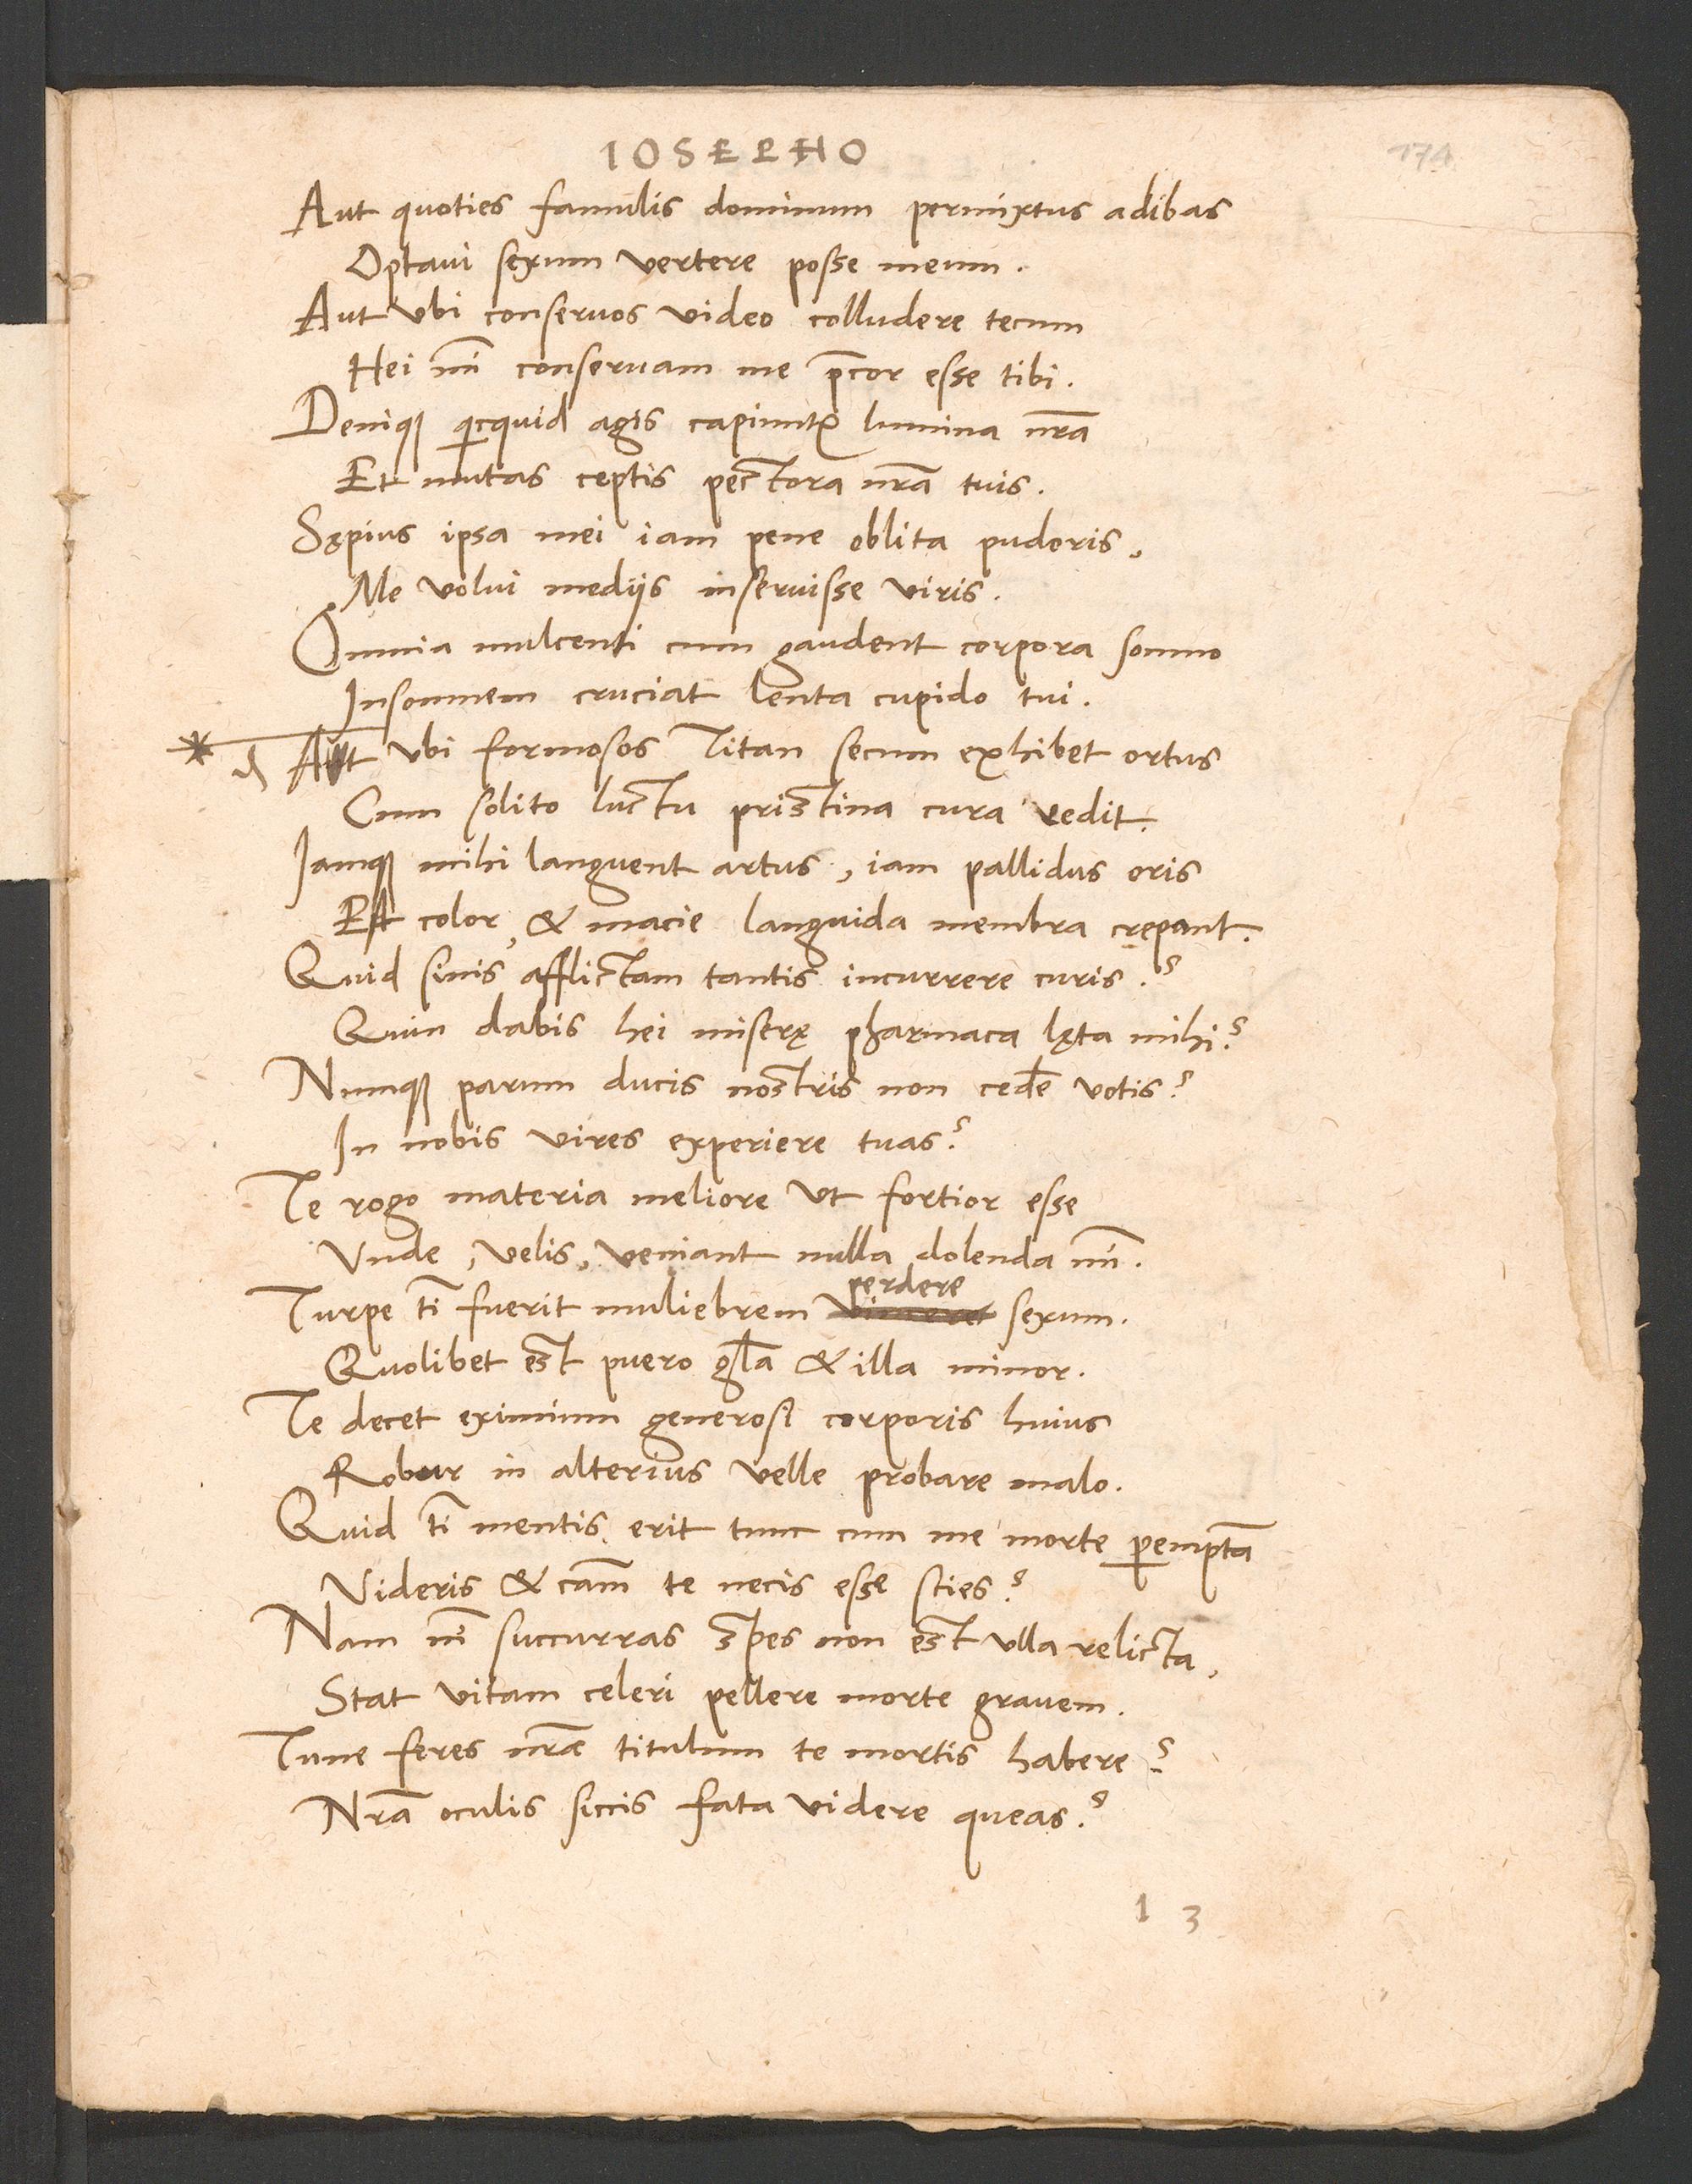 IOSEPHO
174
Aut quoties famulis dominum permixtus adibas
Optaui sexum vertere posse meum.
Aut vbi conseruos video colludere tecum
Hei mi͂ conseruam me p͂cor esse tibi.
Deniqꝫ qicquid agis capiunt᷑ lumina nr͂a
Et mutas ceptis pectora nr͂a tuis.
Sępius ipsa mei iam pene oblita pudoris,
Me volui mediis inseruisse viris.
Omnia mulcenti cum gaudent corpora somno
Insomnem cruciat lenta cupido tui.
* Aut vbi formosos Titan secum exhibet ortus
Cum solito luctu pristina cura redit.
Iamqꝫ mihi languent artus, iam pallidus oris
Est color, & macie languida membra crepant.
Quid sinis afflictam tantis incurrere curis?
Quin dabis hei miserę pharmaca lęta mihi?
Numqꝫ parum ducis nostris non ced͂e votis?
In nobis vires experiere tuas?
Te rogo materia meliore vt fortior esse
Vnde, velis, veniant nulla dolenda mi͂.
Turpe ti͂ fuerit muliebrem perdere sexum.
Quolibet est puero gl͂a & illa minor.
Te decet eximium generosi corporis huius
Robur in alterius velle probare malo.
Quid ti͂ mentis erit tunc cum me morte ꝑempta͂
Videris & ca͂m te necis esse scies?
Nam ni͂ succurras spes non est vlla relicta,
Stat vitam celeri pellere morte grauem.
Tune feres nr͂ae titulum te mortis habere?
Nr͂a oculis siccis fata videre queas?
1 3